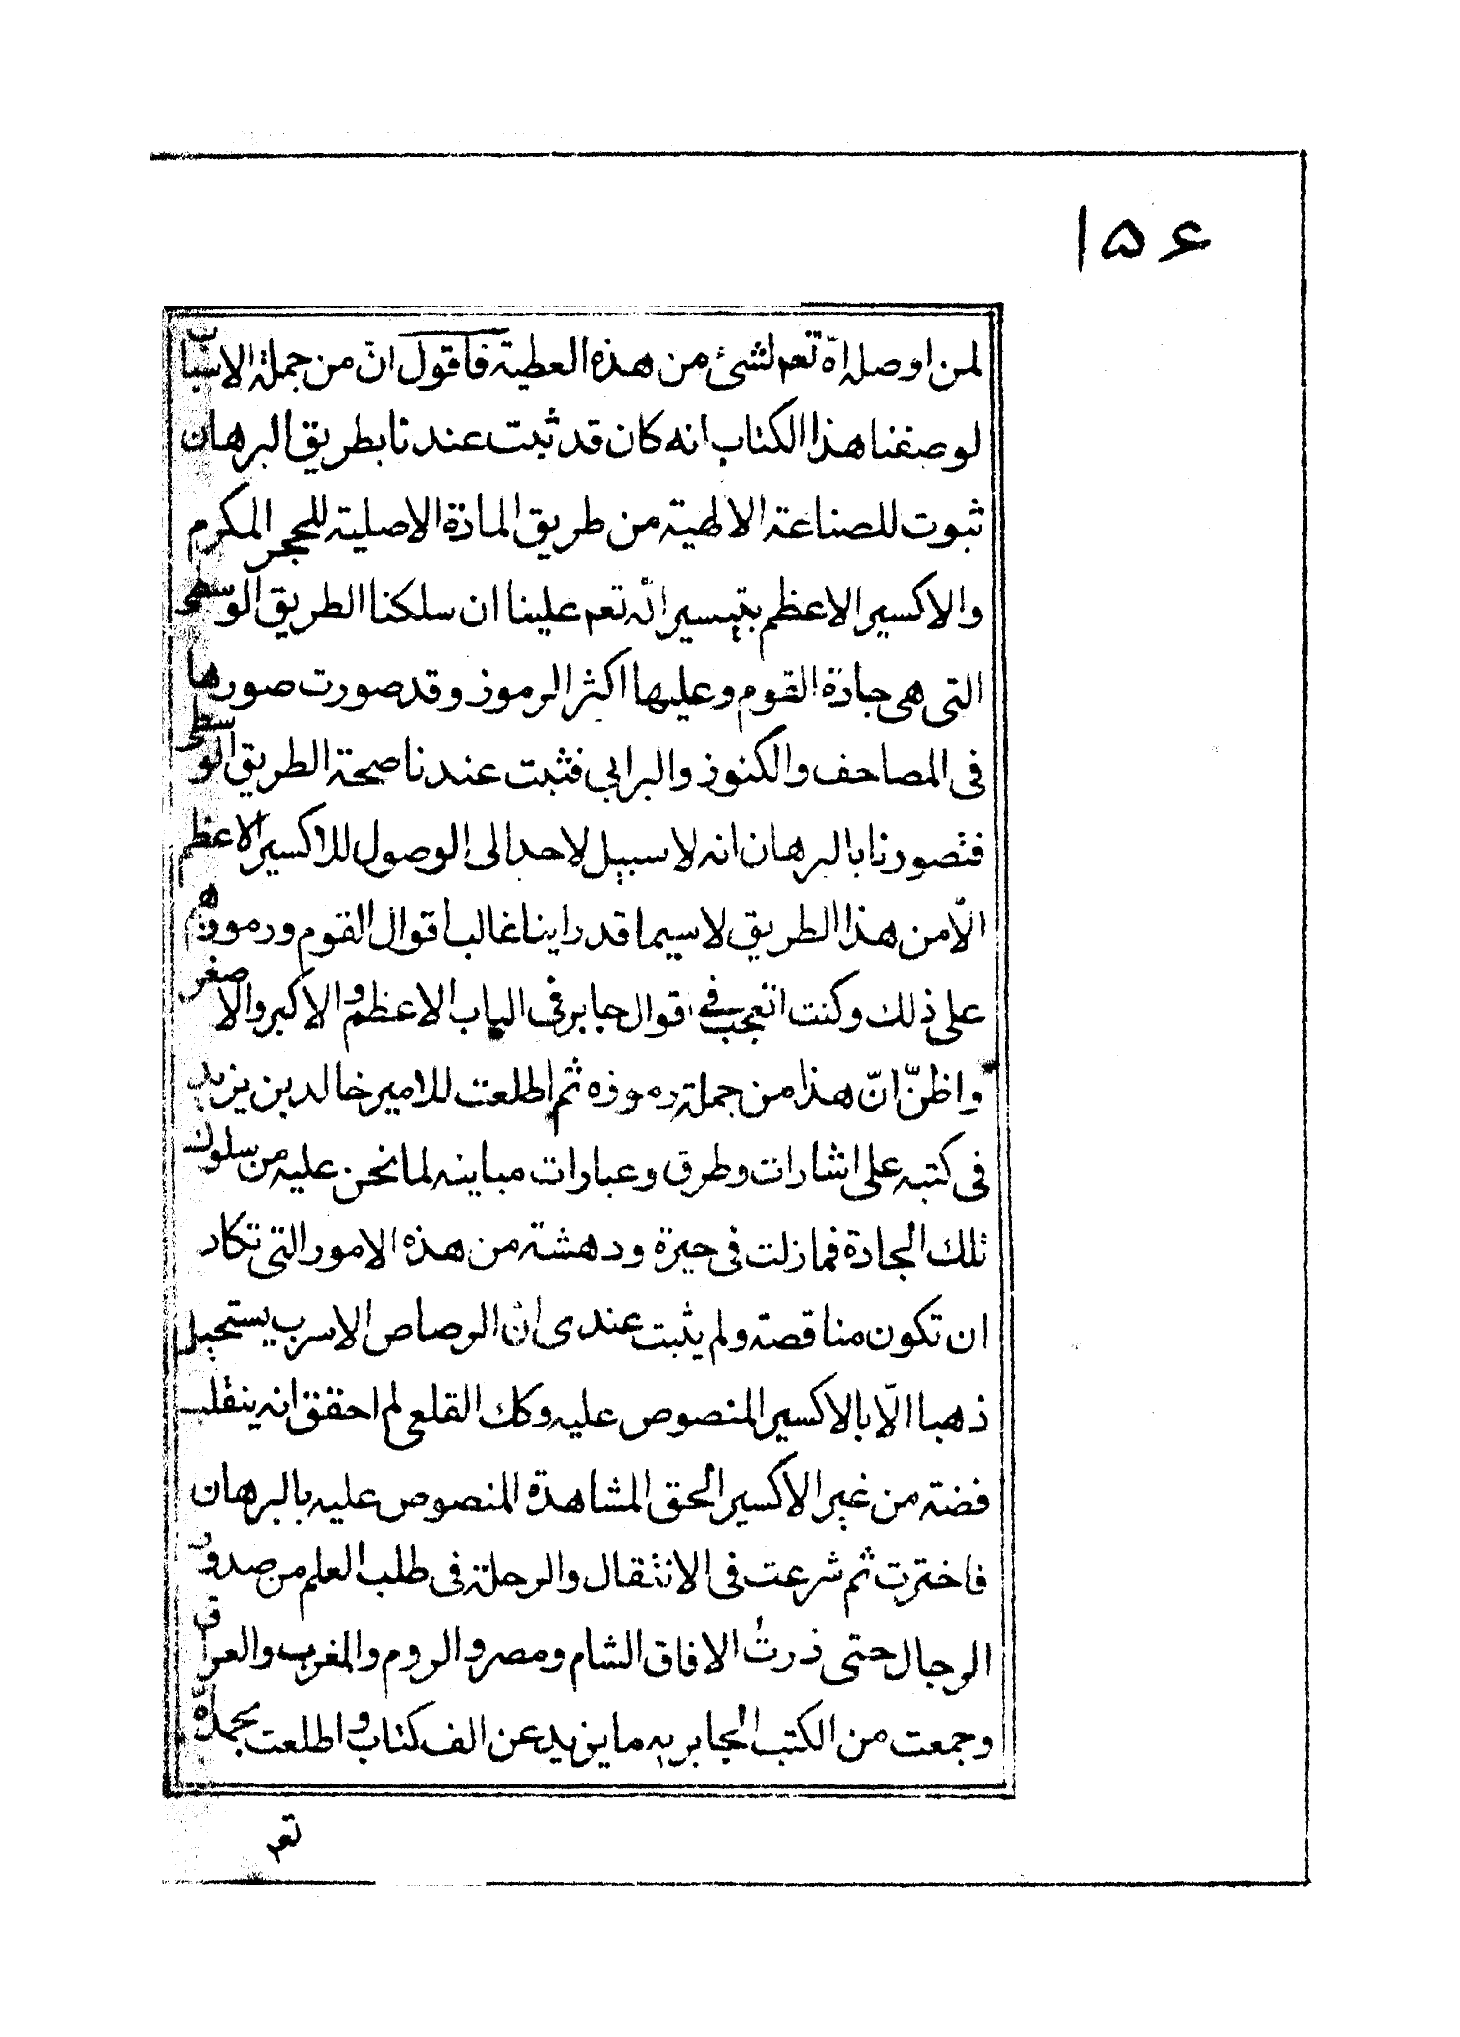 ۱۵۶
لمن اوصله اللّه تعم لشئ من هذه العطية فاقول انّ من جملة الاسباب
لوصفنا هذا الكتاب انه كان قد ثبت عندنا بطريق البرهان
ثبوت للصناعة الالهية من طريق المادّة الاصلية للحجر المكرم
والاكسير الاعظم بتيسير اللّه تعم علينا ان سلكنا الطريق الوسطى
التى هى جادّة القوم وعليها اكثر الرموز وقد صورت صورها
فى المصاحف والكنوز والبرابى فثبت عندنا صحة الطريق الوسطى
فتصورنا بالبرهان انه لا سبيل لاحد الى الوصول للاكسير الاعظم
الّا من هذا الطريق لا سيما قد راينا غالب اقوال القوم ورموزهم
على ذلك وكنت اتعجب فى اقوال جابر فى الباب الاعظم والاكبر والاصغر
واظنّ انّ هذا من جملة رموزه ثم اطلعت للامير خالد بن يزيد
فى كتبه على اشارات وطرق وعبارات مباينه لما نحن عليه من سلوك
تلك الجادة فما زلت فى حيرة ودهشة من هذه الامور التى تكاد
ان تكون مناقصة ولم يثبت عندى انّ الرصاص الاسرب يستحيل
ذهبا الّا بالاكسير المنصوص عليه وكك القلعى لم احقق انه ينقلب
فضة من غير الاكسير الحق المشاهدة المنصوص عليه بالبرهان
فاخترت ثم شرعت فى الانتقال والرحلة فى طلب العلم من صدور
الرجال حتى ذرتُ الافاق الشام ومصر والروم والمغرب والعراق
وجمعت من الكتب الجابريه ما يزيد عن الف كتاب واطلعت بحمد اللّه
تعم